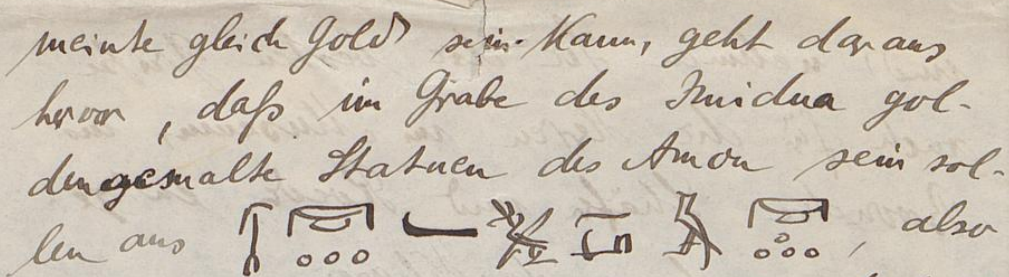 meinte gleich Gold sein kann, geht daraus
hervor, daß im Grabe des Imidua gol-
dengemalte Statuen des Amon sein sol-
len aus , also